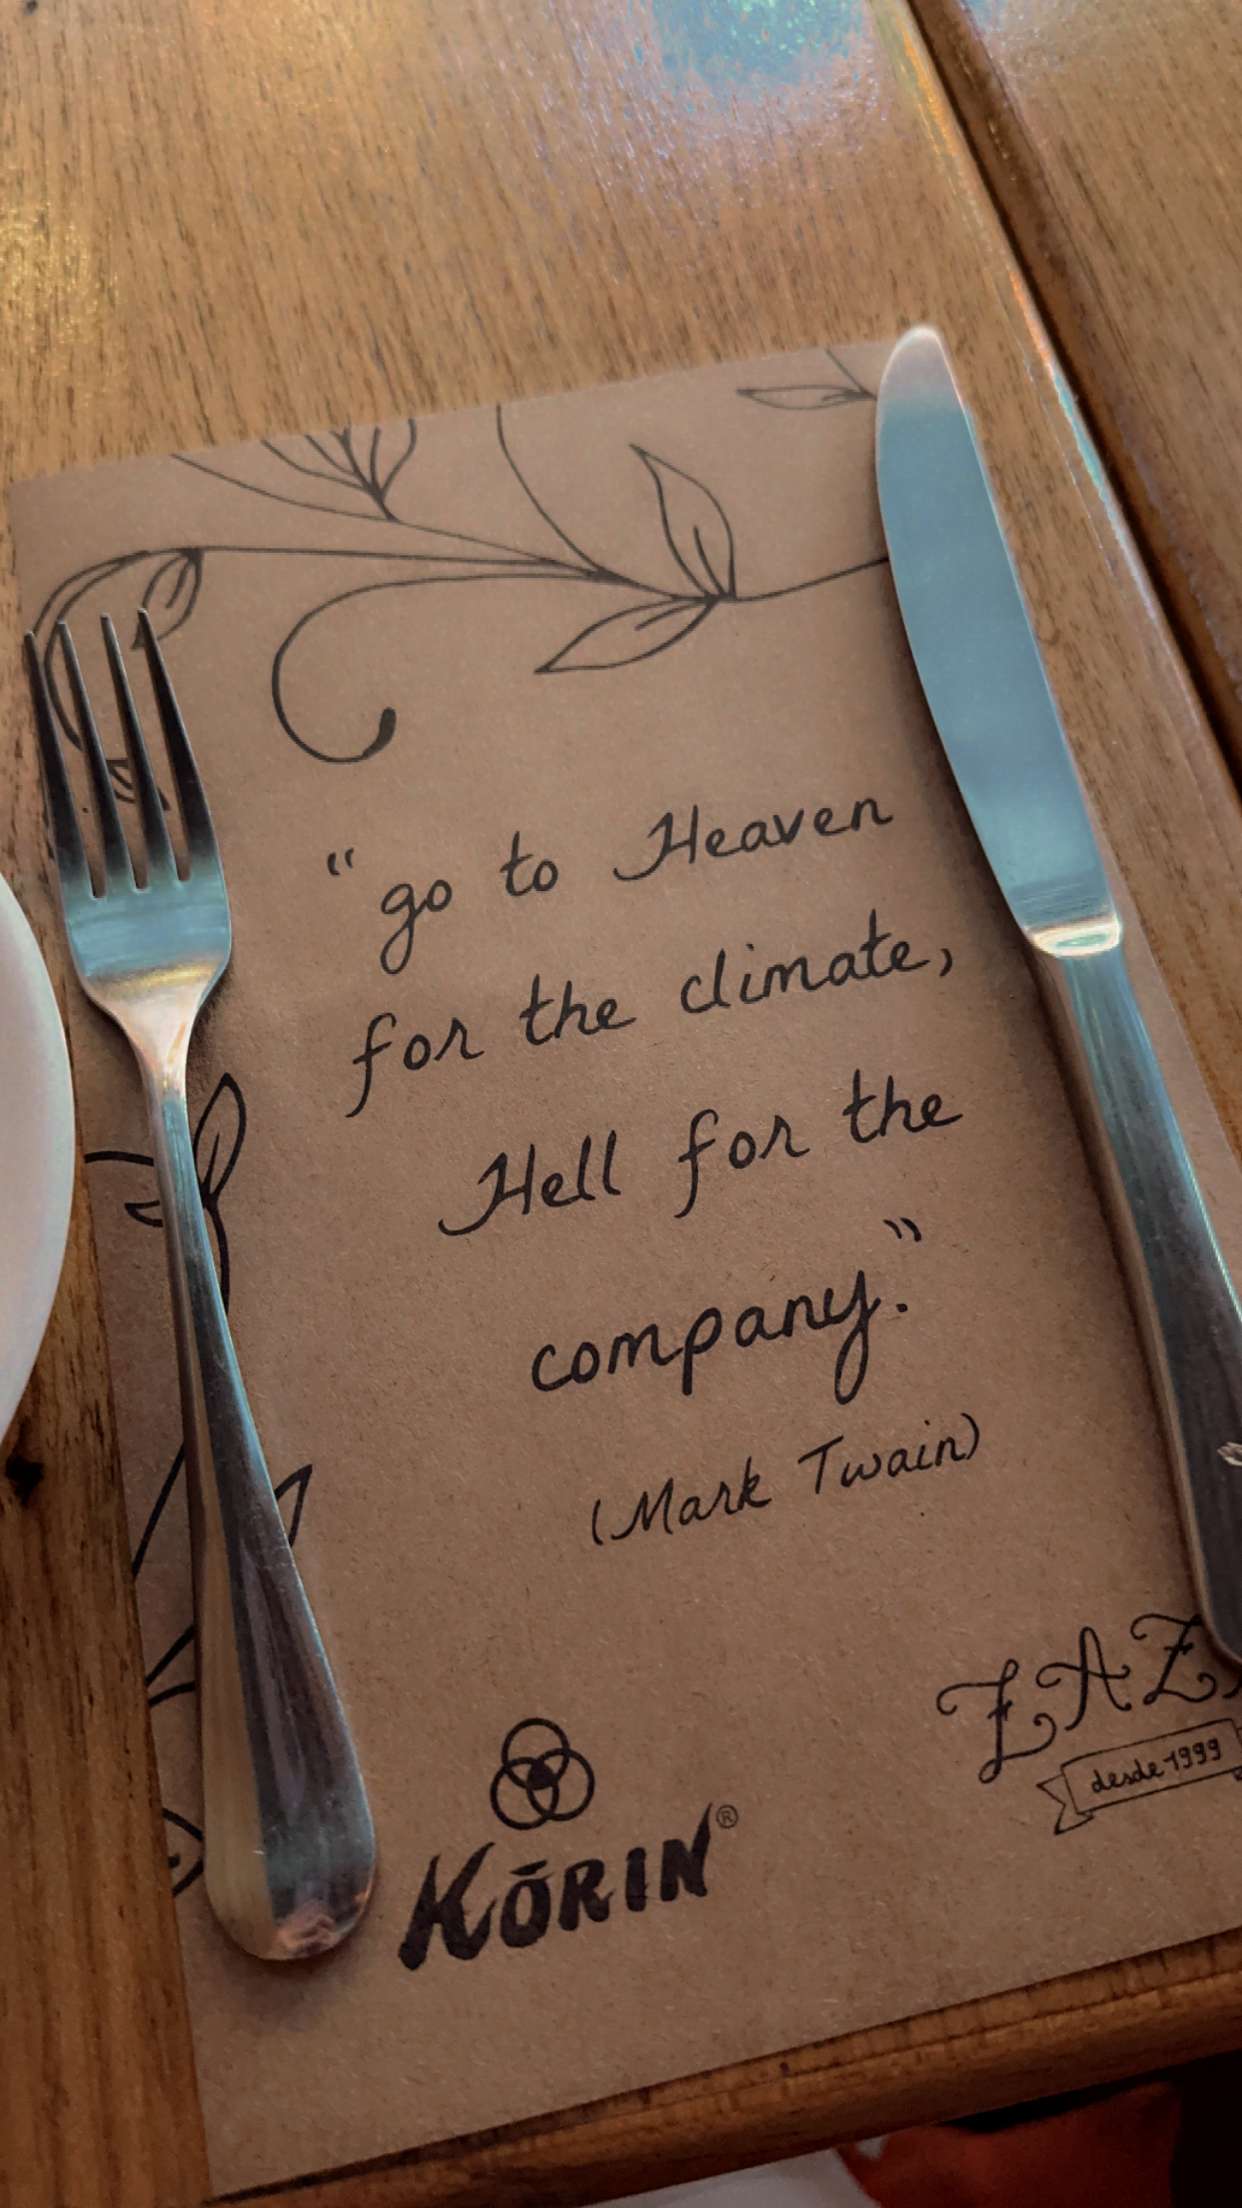 “go to Heaven
for the climate,
Hell for the
company.”
(Mark Twain)
ZAZ
desde 1999
KŌRIN®